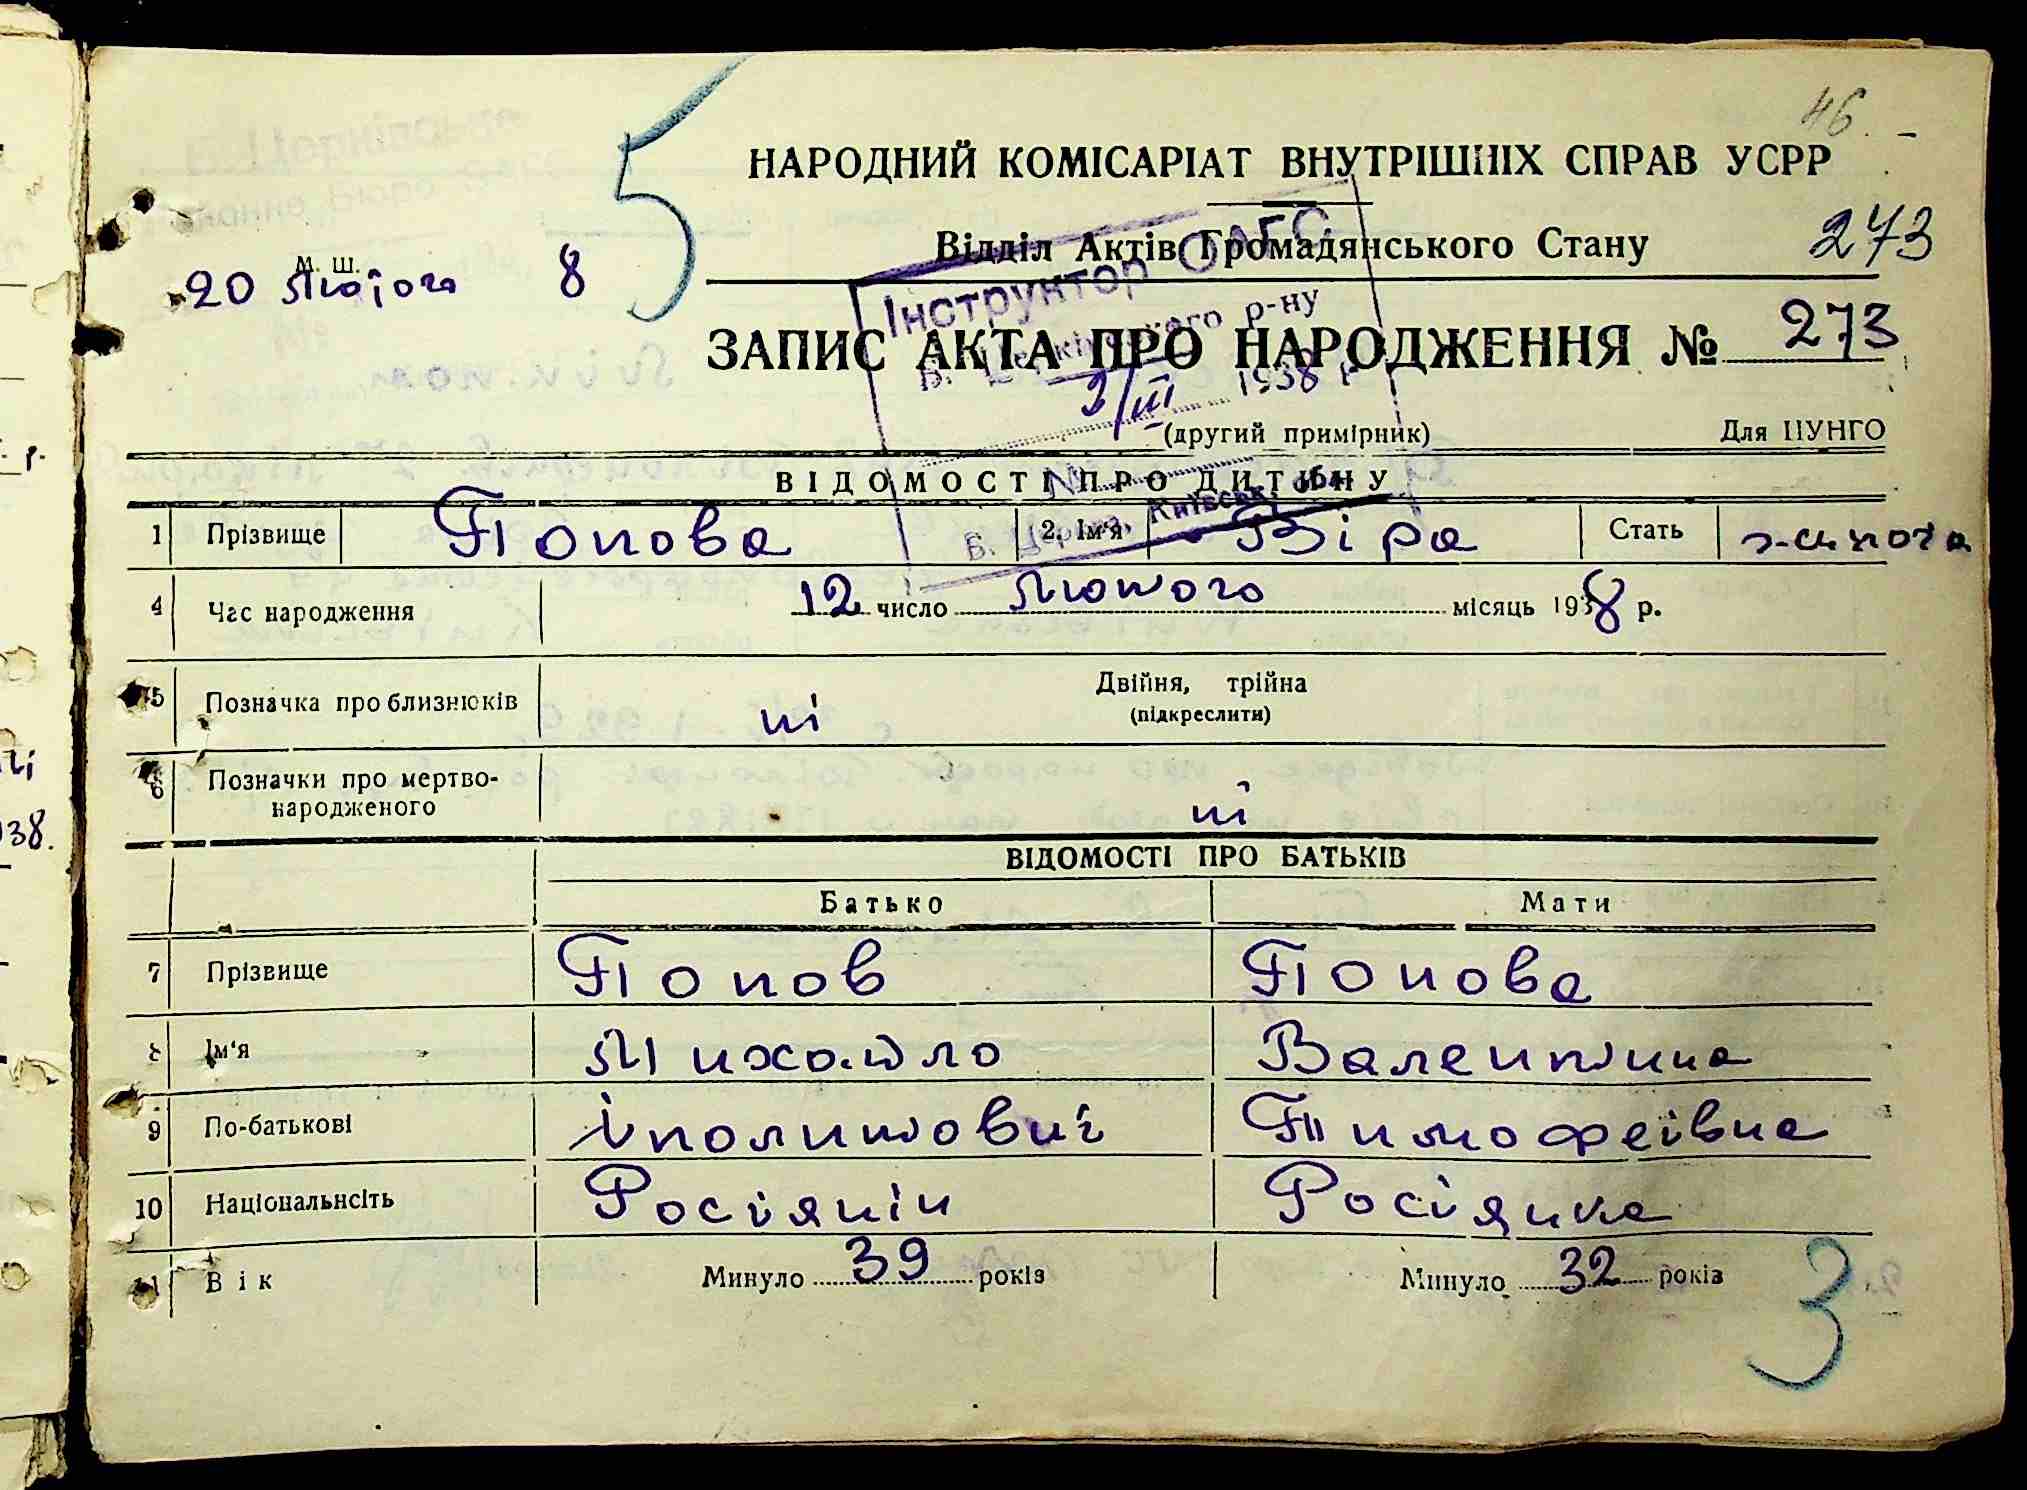 46.
НАРОДНИЙ КОМІСАРІАТ ВНУТРІШНІХ СПРАВ УСРР
Відділ Актів Громадянського Стану
273
м. ш.
20 Лютого 8
5
Інструктор ОАГС
Б. Церківського р-ну
2/III 1938 р
№
Б. Церква, Київськ. обл.
ЗАПИС АКТА ПРО НАРОДЖЕННЯ № 273
(другий примірник)
Для ЦУНГО
ВІДОМОСТІ ПРО ДИТИНУ
1 Прізвище Попова 2. Ім'я Віра Стать жіноча
4 Час народження 12 число Лютого місяць 1938 р.
5 Позначка про близнюків ні Двійня, трійна
(підкреслити)
6 Позначки про мертво-
народженого ні
ВІДОМОСТІ ПРО БАТЬКІВ
Батько Мати
7 Прізвище Попов Попова
8 Ім'я Михайло Валентина
9 По-батькові Іполитович Тимофеївна
10 Національнсіть Росіянін Росіянка
11 Вік Минуло 39 років Минуло 32 років
3